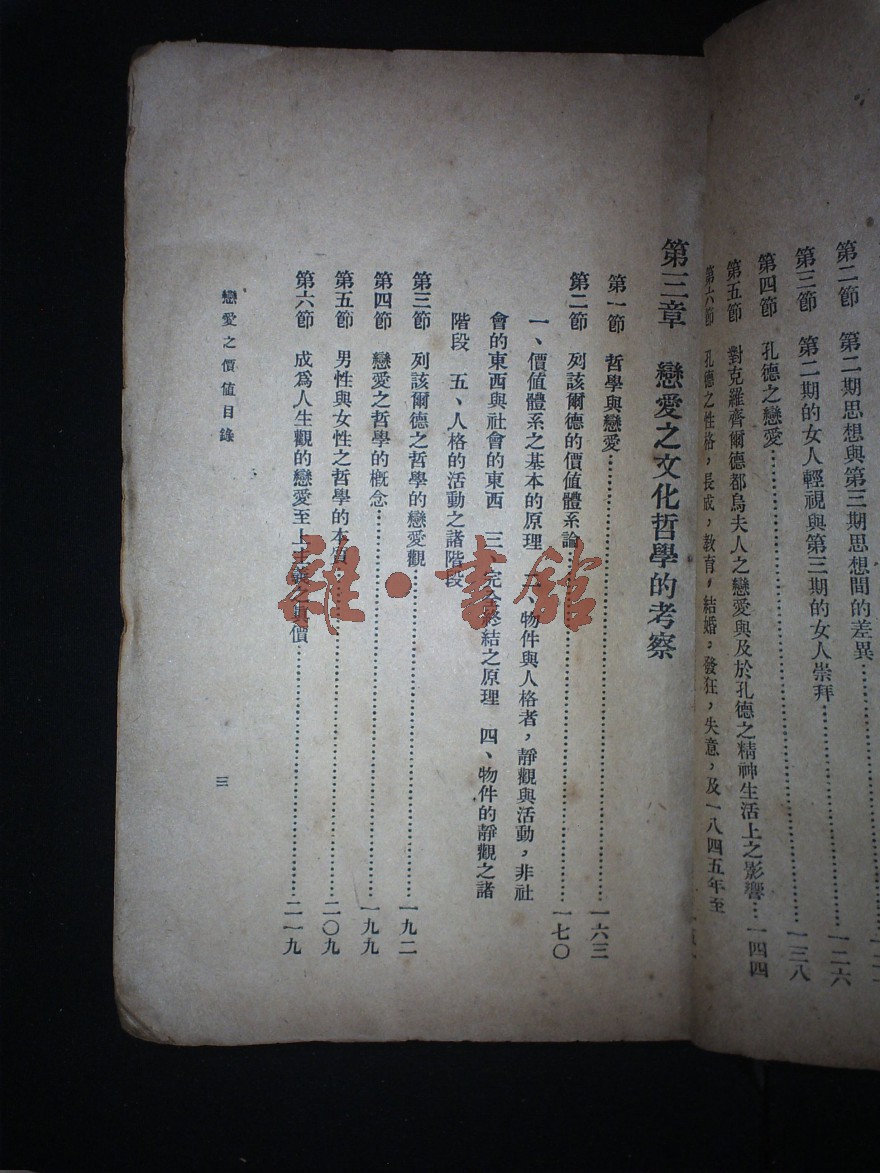 第二節　第二期思想與第三期思想間的差異
一二六
第三節　第二期的女人輕視與第三期的女人崇拜
一三八
第四節　孔德之戀愛
第五節　對克羅齊爾德都烏夫人之戀愛與及於孔德之精神生活上之影響
一四四
第六節　孔德之性格，長成，教育，結婚，發狂，失意，及一八四五年至
第三章　戀愛之文化哲學的考察
第一節　哲學與戀愛……一六三
第二節　列該爾德的價值體系論……一七〇
一、價值體系之基本的原理　二、物件與人格者，靜觀與活動，非社
會的東西與社會的東西　三、完全終結之原理　四、物件的靜觀之諸
階段　五、人格的活動之諸階段
第三節　列該爾德之哲學的戀愛觀……一九二
第四節　戀愛之哲學的概念……一九九
第五節　男性與女性之哲學的本質……二〇九
第六節　成爲人生觀的戀愛至上主義之真價……二一九
戀愛之價值目錄
三
雜·書館